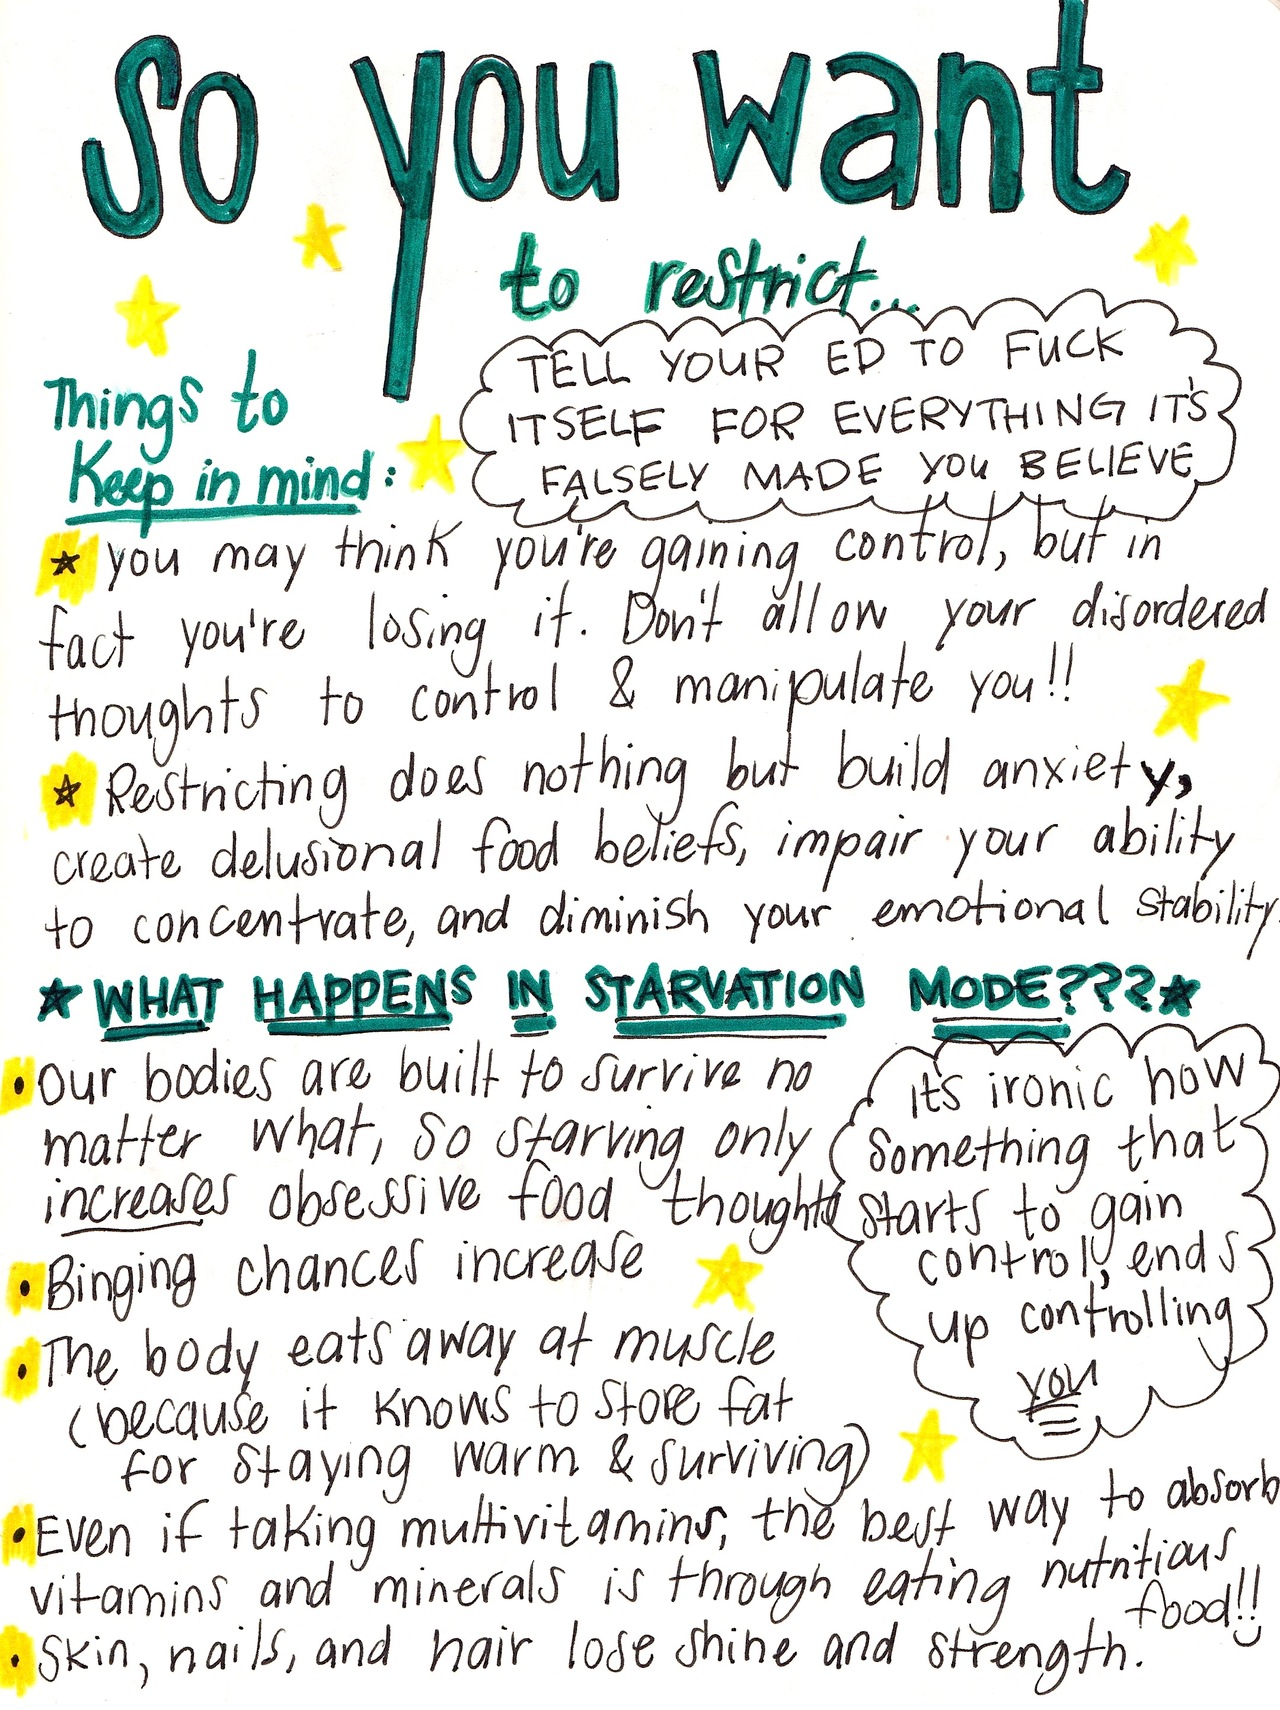 So you want
to restrict...
TELL YOUR ED TO FUCK
ITSELF FOR EVERYTHING IT'S
FALSELY MADE YOU BELIEVE
Things to
Keep in mind:
you may think you're gaining control, but in
fact you're losing it. Don't allow your disordered
thoughts to control & manipulate you!!
Restricting does nothing but build anxiety,
create delusional food beliefs, impair your ability
to concentrate, and diminish your emotional stability.
WHAT HAPPENS IN STARVATION MODE???
• Our bodies are built to survive no
matter what, so starving only
increases obsessive food thoughts
• Binging chances increase
• The body eats away at muscle
(because it knows to store fat
for staying warm & surviving)
its ironic how
something that
starts to gain
control, ends
up controlling
you
• Even if taking multivitamins, the best way to absorb
vitamins and minerals is through eating nutritious
food!!
• Skin, nails, and hair lose shine and strength.